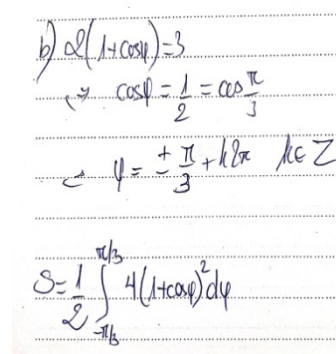 b) 2(1+cosφ)=3
<=> cosφ = 1/2 = cos π/3
<=> φ = ± π/3 + k2π k∈Z
S = 1/2 ∫_{-π/3}^{π/3} 4(1+cosφ)²dφ